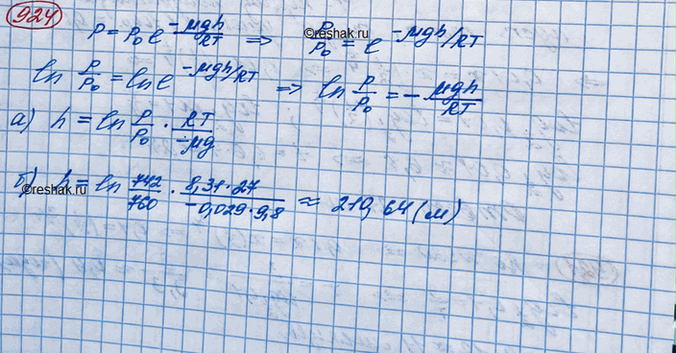 924
P = P₀ e^(-μgh/RT) ⇒ P/P₀ = e^(-μgh/RT)
©reshak.ru
ln P/P₀ = ln e^(-μgh/RT) ⇒ ln P/P₀ = - μgh/RT
а) h = ln P/P₀ · RT/-μg
б) h = ln 742/760 · 8,31·27/-0,029·9,8 ≈ 210,64 (м)
©reshak.ru